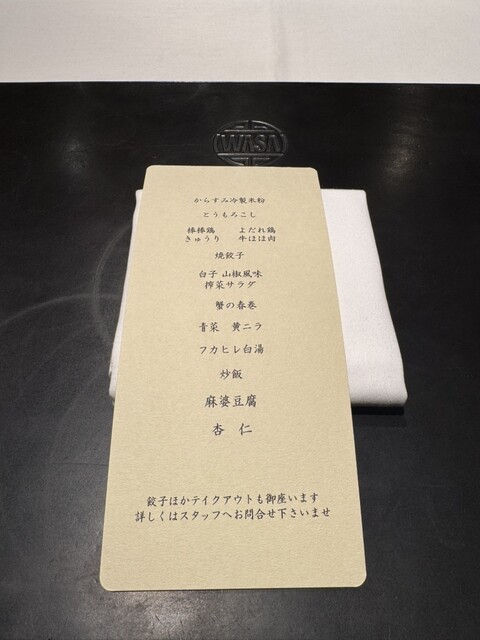 WASA
からすみ冷製米粉
とうもろこし
棒棒鶏　よだれ鶏
きゅうり　牛ほほ肉
焼餃子
白子 山椒風味
搾菜サラダ
蟹の春巻
青菜　黄ニラ
フカヒレ白湯
炒飯
麻婆豆腐
杏　仁
餃子ほかテイクアウトも御座います
詳しくはスタッフへお問合せ下さいませ